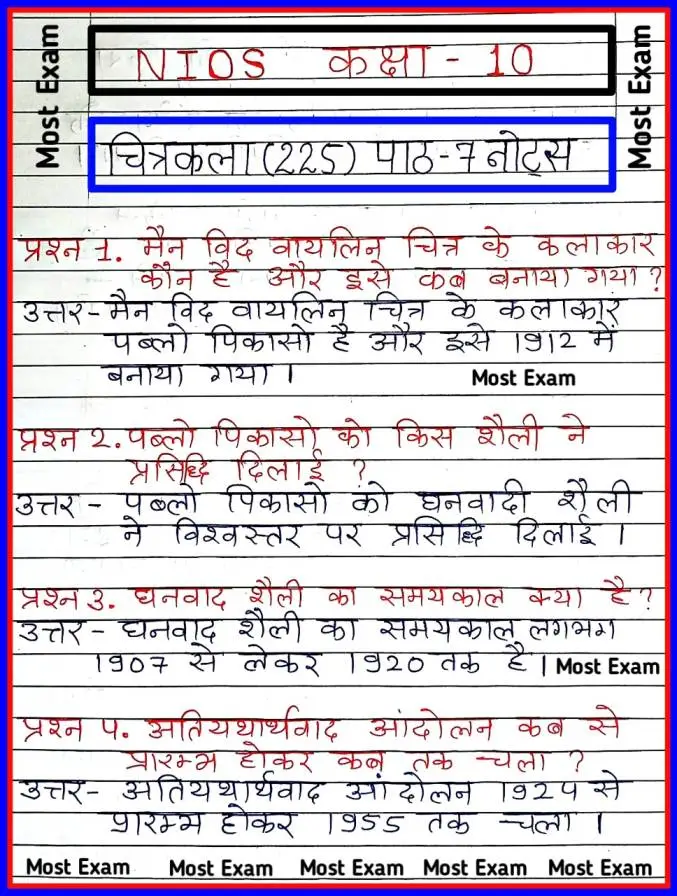 Most Exam
NIOS कक्षा - 10
Most Exam
चित्रकला (225) पाठ-7 नोट्स
प्रश्न 1. मैन विद वायलिन चित्र के कलाकार
कौन है और इसे कब बनाया गया?
उत्तर - मैन विद वायलिन चित्र के कलाकार
पब्लो पिकासो है और इसे 1912 में
बनाया गया।
Most Exam
प्रश्न 2. पब्लो पिकासो को किस शैली ने
प्रसिद्धि दिलाई ?
उत्तर - पब्लो पिकासो को घनवादी शैली
ने विश्वस्तर पर प्रसिद्धि दिलाई ।
प्रश्न 3. घनवाद शैली का समयकाल क्या है?
उत्तर - घनवाद शैली का समयकाल लगभग
1907 से लेकर 1920 तक है। Most Exam
प्रश्न 4. अतियथार्थवाद आंदोलन कब से
प्रारम्भ होकर कब तक चला ?
उत्तर- अतियथार्थवाद आंदोलन 1924 से
प्रारम्भ होकर 1955 तक चला ।
Most Exam Most Exam Most Exam Most Exam Most Exam